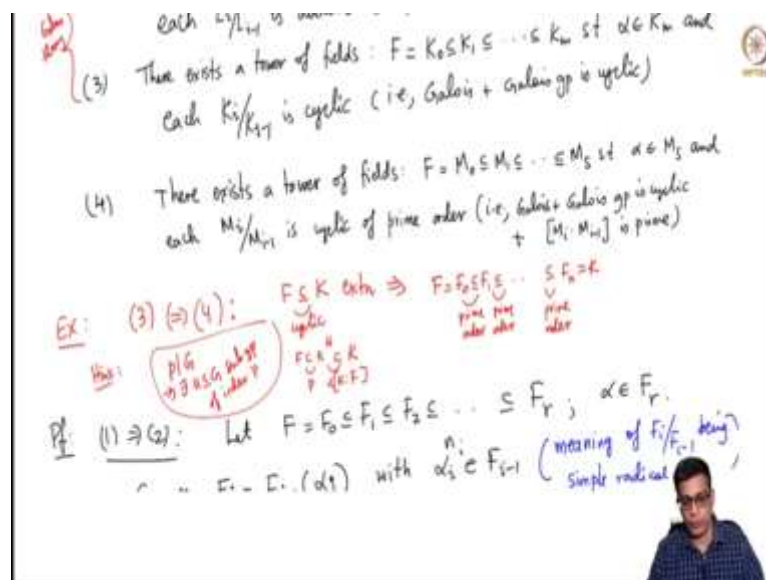 each Li/Li-1 is
(3) There exists a tower of fields: F = K₀ ⊆ K₁ ⊆ ··· ⊆ Kₘ st α ∈ Kₘ and
each Ki/Ki-1 is cyclic (ie, Galois + Galois gp is cyclic)
(4) There exists a tower of fields: F = M₀ ⊆ M₁ ⊆ ·· ⊆ M_s st α ∈ M_s and
each Mi/Mi-1 is cyclic of prime order (ie, Galois + Galois gp is cyclic
+ [Mi : Mi-1] is prime)
Ex: (3) ⇔ (4): F ⊆ K extn ⇒ F = F₀ ⊆ F₁ ⊆ ·· ⊆ Fₙ = K
cyclic prime order prime order prime order
Hint: p/G F ⊆ K^H ⊆ K
→ ∃ H ≤ G subgp p <[K:F]
of index p
Pf: (1) ⇒ (2): Let F = F₀ ⊆ F₁ ⊆ F₂ ⊆ ·· ⊆ Fr; α ∈ Fr.
(αi) with αi^ni ∈ Fi-1 (meaning of Fi/Fi-1 being
simple radical